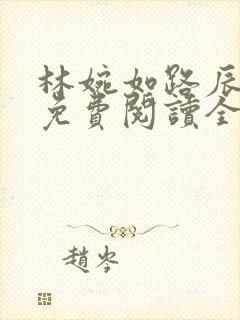 林婉如路辰
免費閱讀全
趙岑